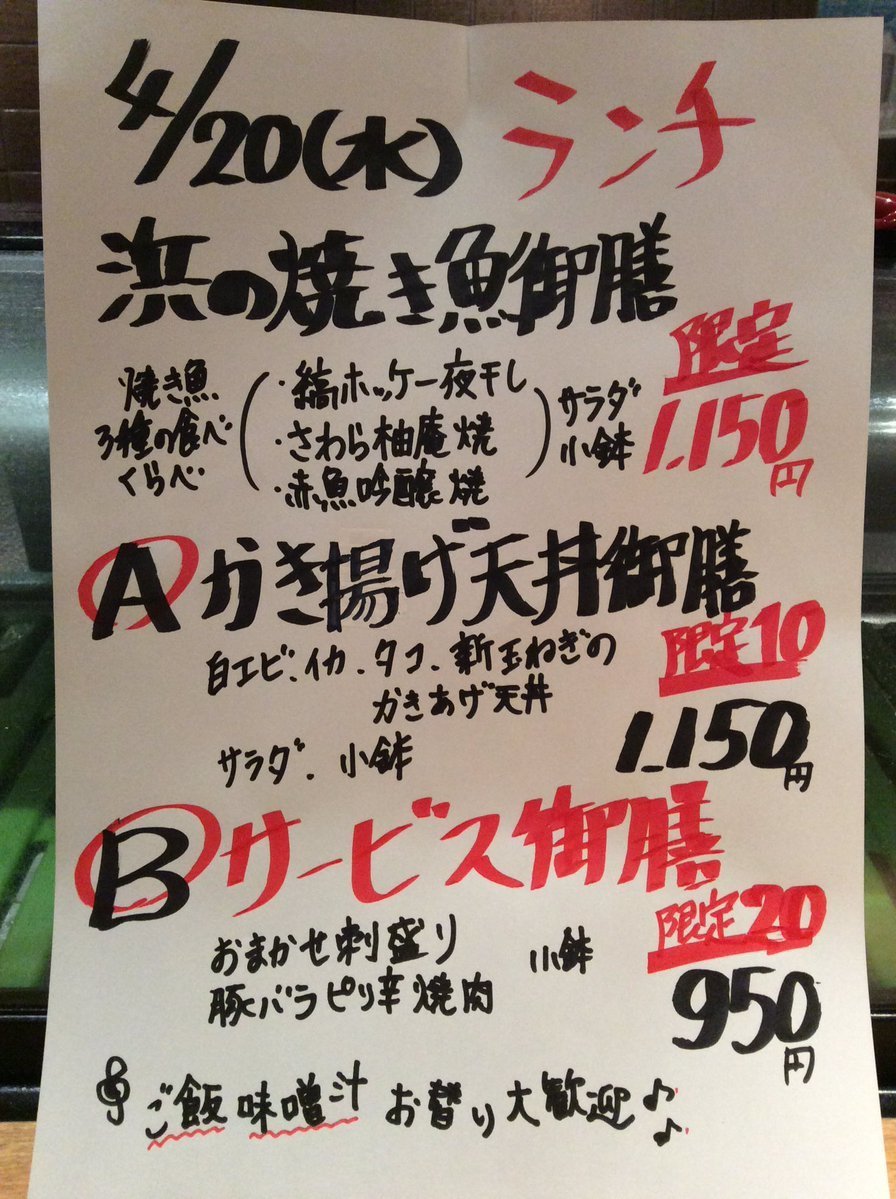 4/20(水) ランチ
浜の焼き魚御膳
限定
焼き魚
3種の食べ
くらべ
・縞ホッケ一夜干し
・さわら柚庵焼
・赤魚吟醸焼
サラダ
小鉢
1.150円
A かき揚げ天丼御膳
限定10
白エビ、イカ、タコ、新玉ねぎの
かきあげ天丼
サラダ、小鉢
1.150円
B サービス御膳
限定20
おまかせ刺盛り 小鉢
豚バラピリ辛焼肉
950円
ご飯 味噌汁 お替り大歓迎♪♪